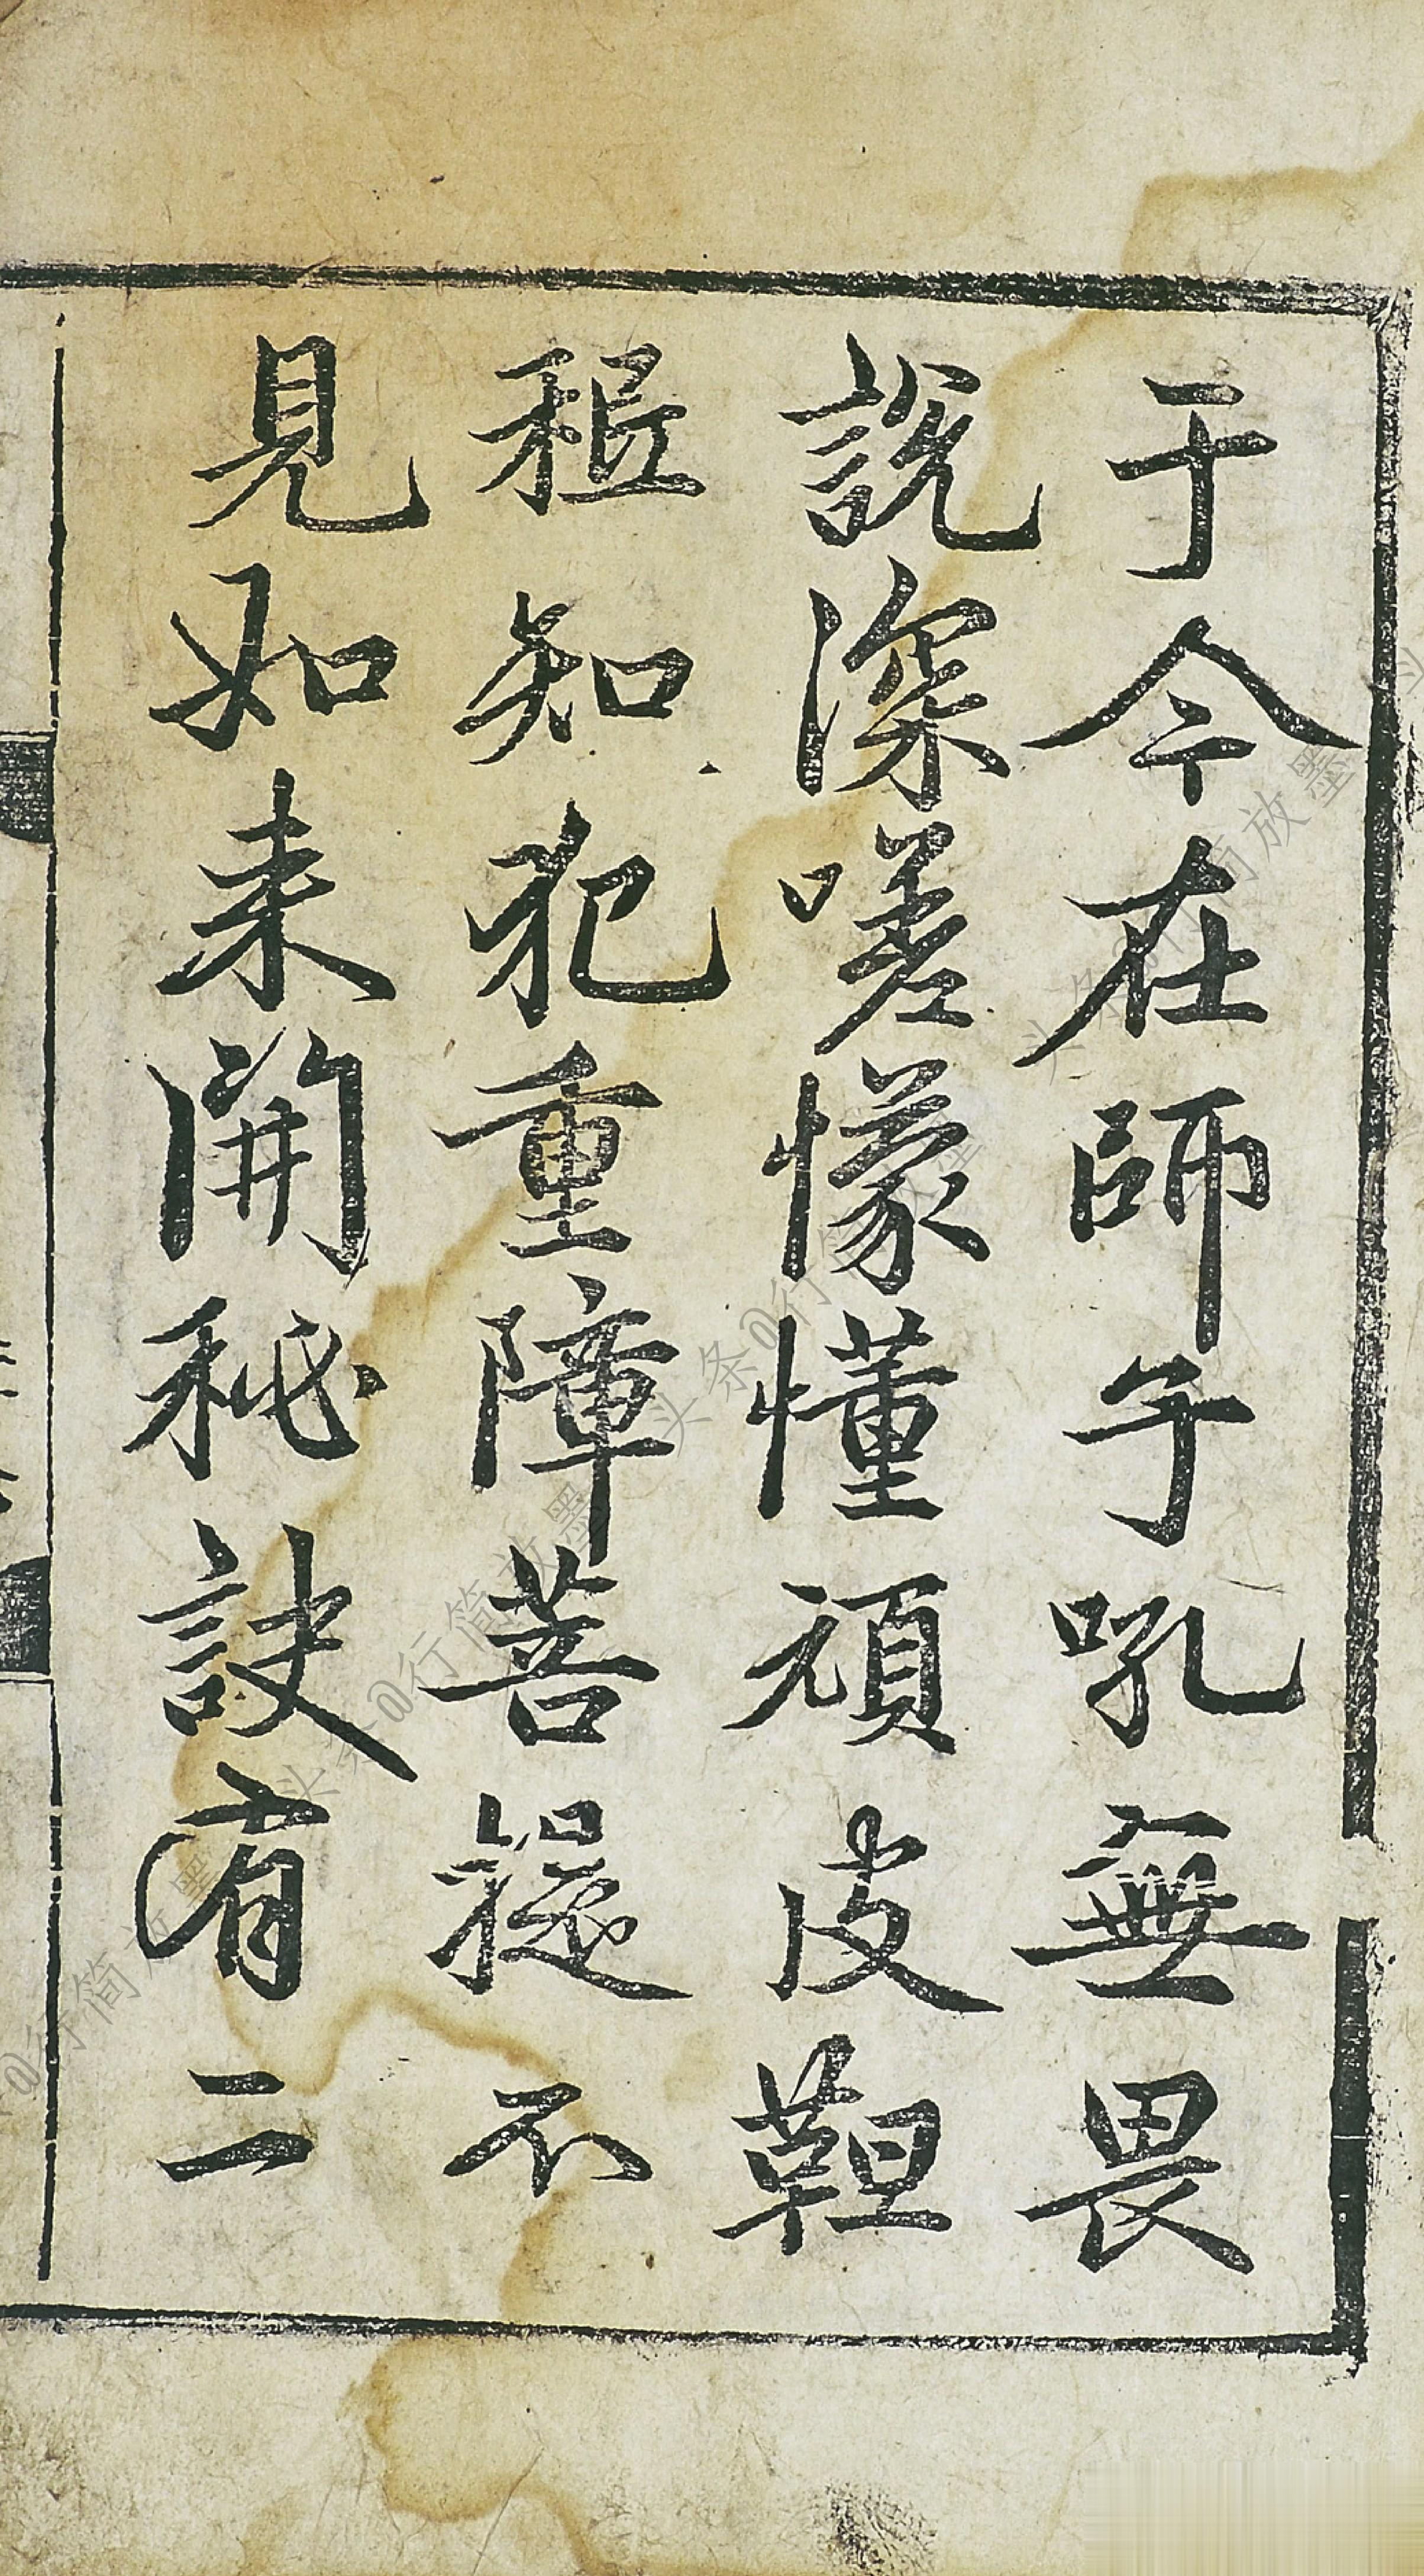 于今在師子吼無畏
說深嗟懞懂頑皮靼
秖知犯重障菩提不
見如来開秘訣有二
头条@行简放墨
头条@行简放墨
头条@行简放墨
@行简放墨